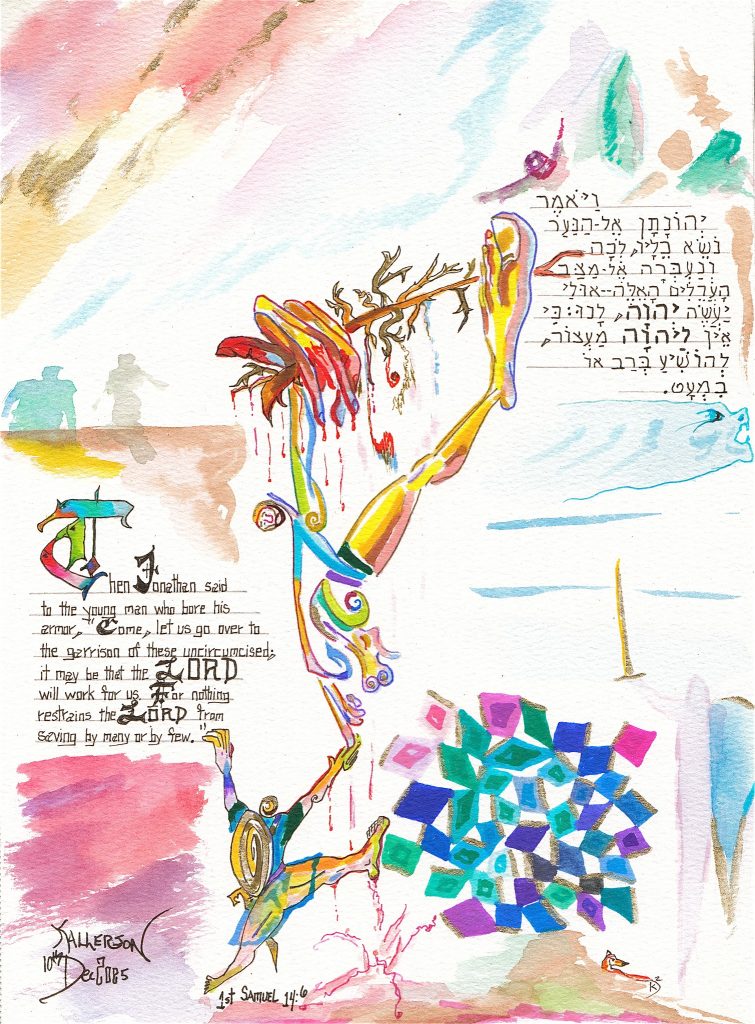 וַיֹּאמֶר
יְהוֹנָתָן אֶל-הַנַּעַר
נֹשֵׂא כֵלָיו, לְכָה
וְנַעְבְּרָה אֶל-מַצַּב
הָעֲרֵלִים הָאֵלֶּה--אוּלַי
יַעֲשֶׂה יְהוָה, לָנוּ: כִּי
אֵין לַיהוָה מַעְצוֹר,
לְהוֹשִׁיעַ בְּרַב אוֹ
בִמְעָט.
Then Jonathan said
to the young man who bore his
armor, "Come, let us go over to
the garrison of these uncircumcised;
it may be that the LORD
will work for us. For nothing
restrains the LORD from
saving by many or by few."
10th
Dec
1st SAMUEL 14:6